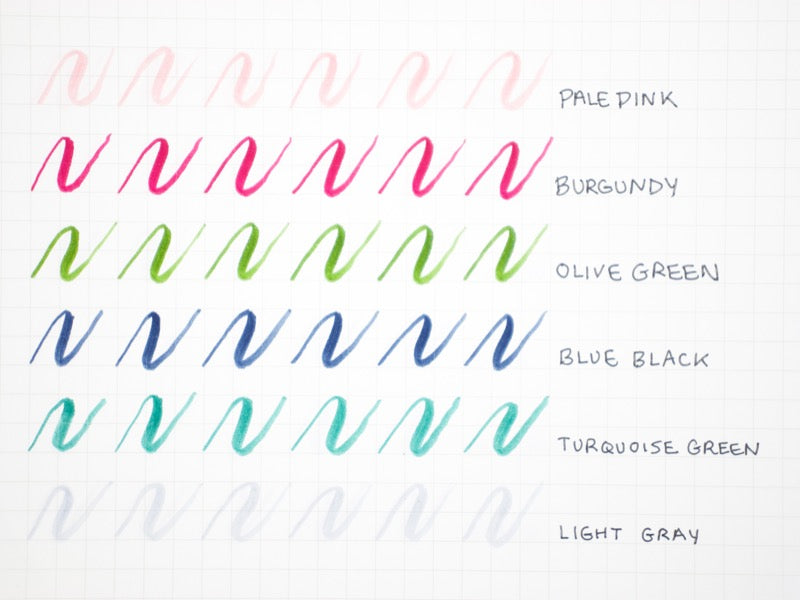 PALE PINK
BURGUNDY
OLIVE GREEN
BLUE BLACK
TURQUOISE GREEN
LIGHT GRAY